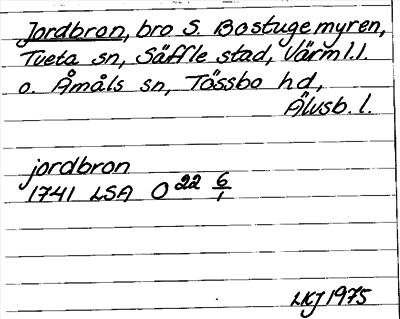 Jordbron, bro S. Bostugemyren,
Tveta sn, Säffle stad, Värml.l.
o. Åmåls sn, Tössbo hd,
Älvsb. l.
jordbron
1741 LSA O 22 6/1
LKJ 1975